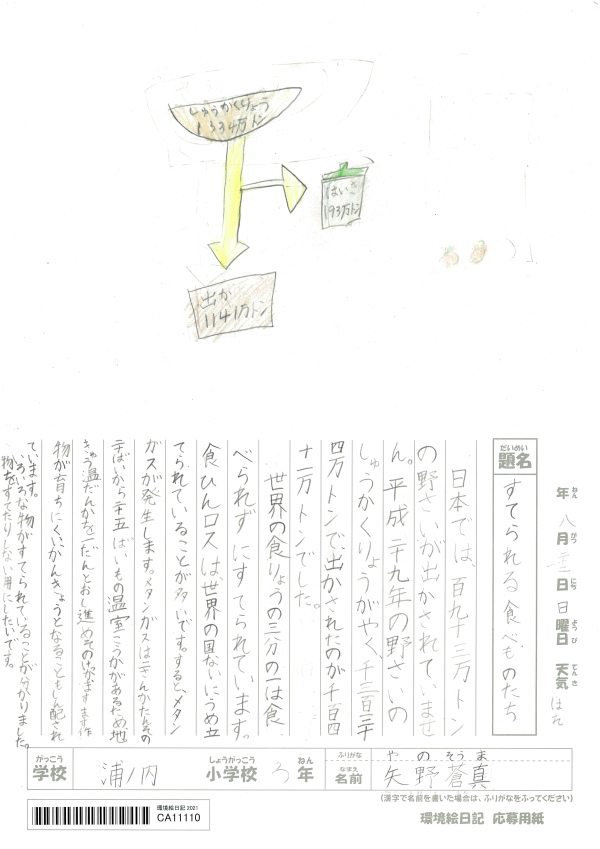 しゅうかくりょう
1334万トン
はいき
193万トン
出か
1141万トン
年 八月 日 日曜日 天気 はれ
ねん がつ にち ようび てんき
だいめい
題名
すてられる食べものたち
日本では、百九十三万トン
の野さいが出かされていませ
ん。平成二十九年の野さいの
しゅうかくりょうがやく、千三百三十
四万トンで出かされたのが千百四
十一万トンでした。
世界の食りょうの三分の一は食
べられずにすてられています。
食ひんロスは、世界の国ないにうめ立
てられていることが多いです。すると、メタン
ガスが発生します。メタンガスは二さんかたんその
二十ばいから二十五ばいもの温室こうかがあるため地
きゅう温だんかを一だんとおし進めそのけっかますます作
物が育ちにくいかんきょうとなることもしん配され
ています。
いろいろな物がすてられていることが分かりました。
物をすてたりしない用にしたいです。
がっこう
学校
浦ノ内
しょうがっこう
小学校
3
ねん
年
ふりがな
なまえ
名前
や の そう ま
矢野蒼真
(漢字で名前を書いた場合は、ふりがなをふってください)
環境絵日記 2021
CA11110
環境絵日記 応募用紙